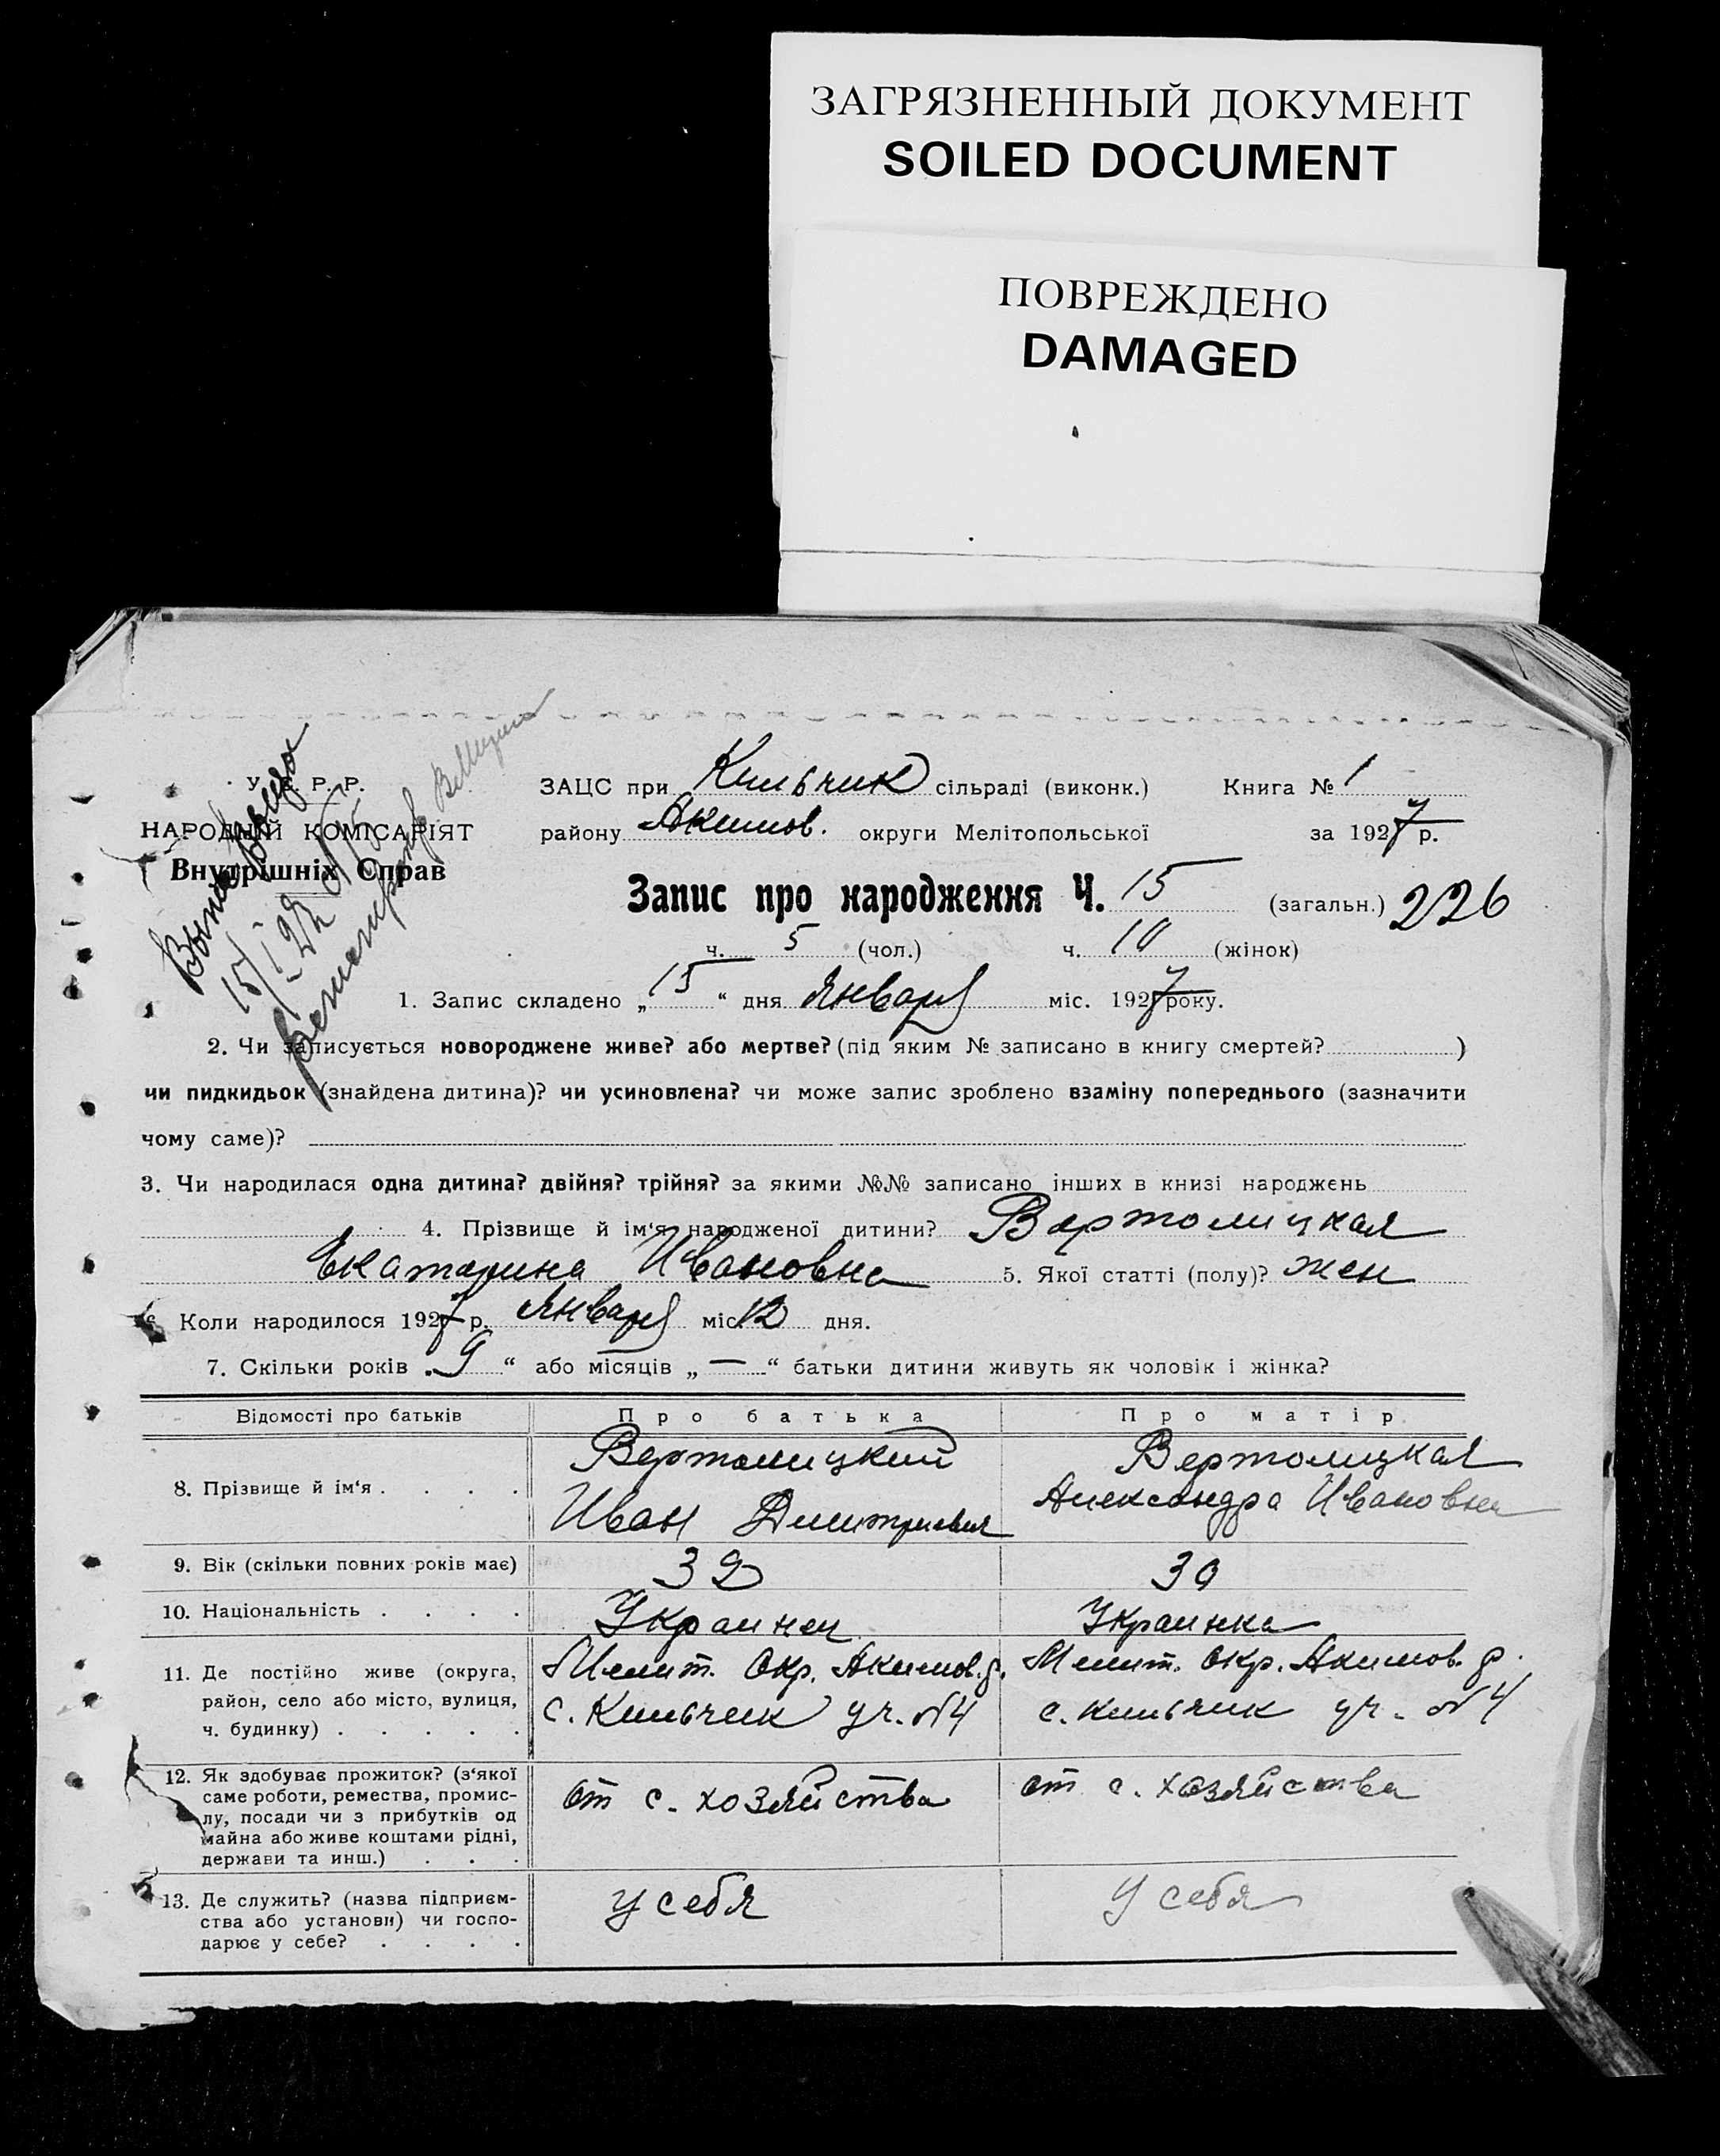 ЗАГРЯЗНЕННЫЙ ДОКУМЕНТ
SOILED DOCUMENT
ПОВРЕЖДЕНО
DAMAGED
У. С. Р. Р.
НАРОДНІЙ КОМІСАРІЯТ
Внутрішніх Справ
ЗАЦС при Кильчик сільраді (виконк.) Книга № 1
району Акимов. округи Мелітопольської за 1927 р.
Запис про народження Ч. 15 (загальн.) 226
ч. 5 (чол.) ч. 10 (жінок)
1. Запис складено „15“ дня Января міс. 1927 року.
2. Чи записується новороджене живе? або мертве? (під яким № записано в книгу смертей? )
чи пидкидьок (знайдена дитина)? чи усиновлена? чи може запис зроблено взаміну попереднього (зазначити
чому саме)?
3. Чи народилася одна дитина? двійня? трійня? за якими №№ записано інших в книзі народжень
4. Прізвище й ім‘я народженої дитини? Вертолицкая
Екатерина Ивановна 5. Якої статті (полу)? жен
6. Коли народилося 1927 р. Января міс. 12 дня.
7. Скільки років „9“ або місяців „—“ батьки дитини живуть як чоловік і жінка?
Відомості про батьків Про батька Про матір
8. Прізвище й ім‘я . . . . Вертолицкий Вертолицкая
Иван Дмитриевич Александра Ивановна
9. Вік (скільки повних років має) 32 30
10. Національність . . . . Украинец Украинка
11. Де постійно живе (округа, Мелит. Окр. Акимов. р. Мелит. Окр. Акимов. р.
район, село або місто, вулиця, с. Кильчик уч. №4 с. Кильчик уч. №4
ч. будинку) . . . . .
12. Як здобуває прожиток? (з‘якої
саме роботи, ремества, промис- от с. хозяйства от с. хозяйства
лу, посади чи з прибутків од
майна або живе коштами рідні,
держави та инш.) . . .
13. Де служить? (назва підприєм- у себя у себя
ства або установи) чи госпо-
дарює у себе? . . . .